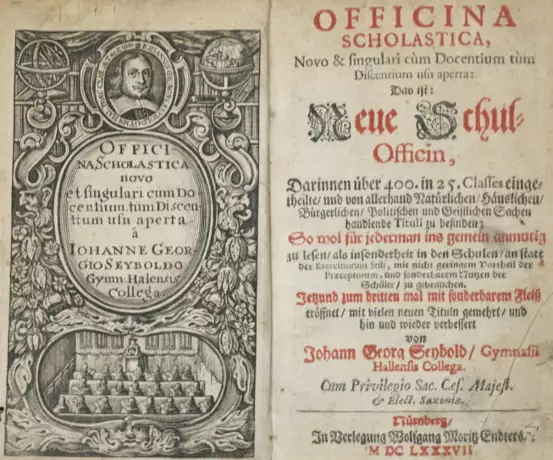 OFFICI
NA SCHOLASTICA
novo
et singulari cum Do
centium tum Discen
tium usu aperta
â
IOHANNE GEOR
GIO SEYBOLDO
Gymn: Halensis
Collega.
OFFICINA
SCHOLASTICA,
Novo & singulari cùm Docentium tùm
Discentium usu aperta:
Das ist:
Neue Schul-
Officin,
Darinnen über 400. in 25. Classes einge-
theilte/ und von allerhand Natürlichen/ Häuslichen/
Bürgerlichen/ Politischen und Geistlichen Sachen
handlende Tituli zu befinden;
So wol für jederman ins gemein anmutig
zu lesen/ als insonderheit in den Schulen/ an statt
der Exercitiorum Stili, mit nicht geringem Vortheil der
Præceptorum, und sonderbarem Nutzen der
Schüler/ zu gebrauchen.
Jetzund zum dritten mal mit sonderbarem Fleiß
eröffnet/ mit vielen neuen Tituln gemehrt/ und
hin und wieder verbessert
von
Johann Georg Seybold/ Gymnasii
Hallensis Collega.
Cum Privilegio Sac. Cæs. Majest.
& Elect. Saxoniæ.
Nürnberg/
In Verlegung Wolfgang Moritz Endters.
M DC LXXXVII